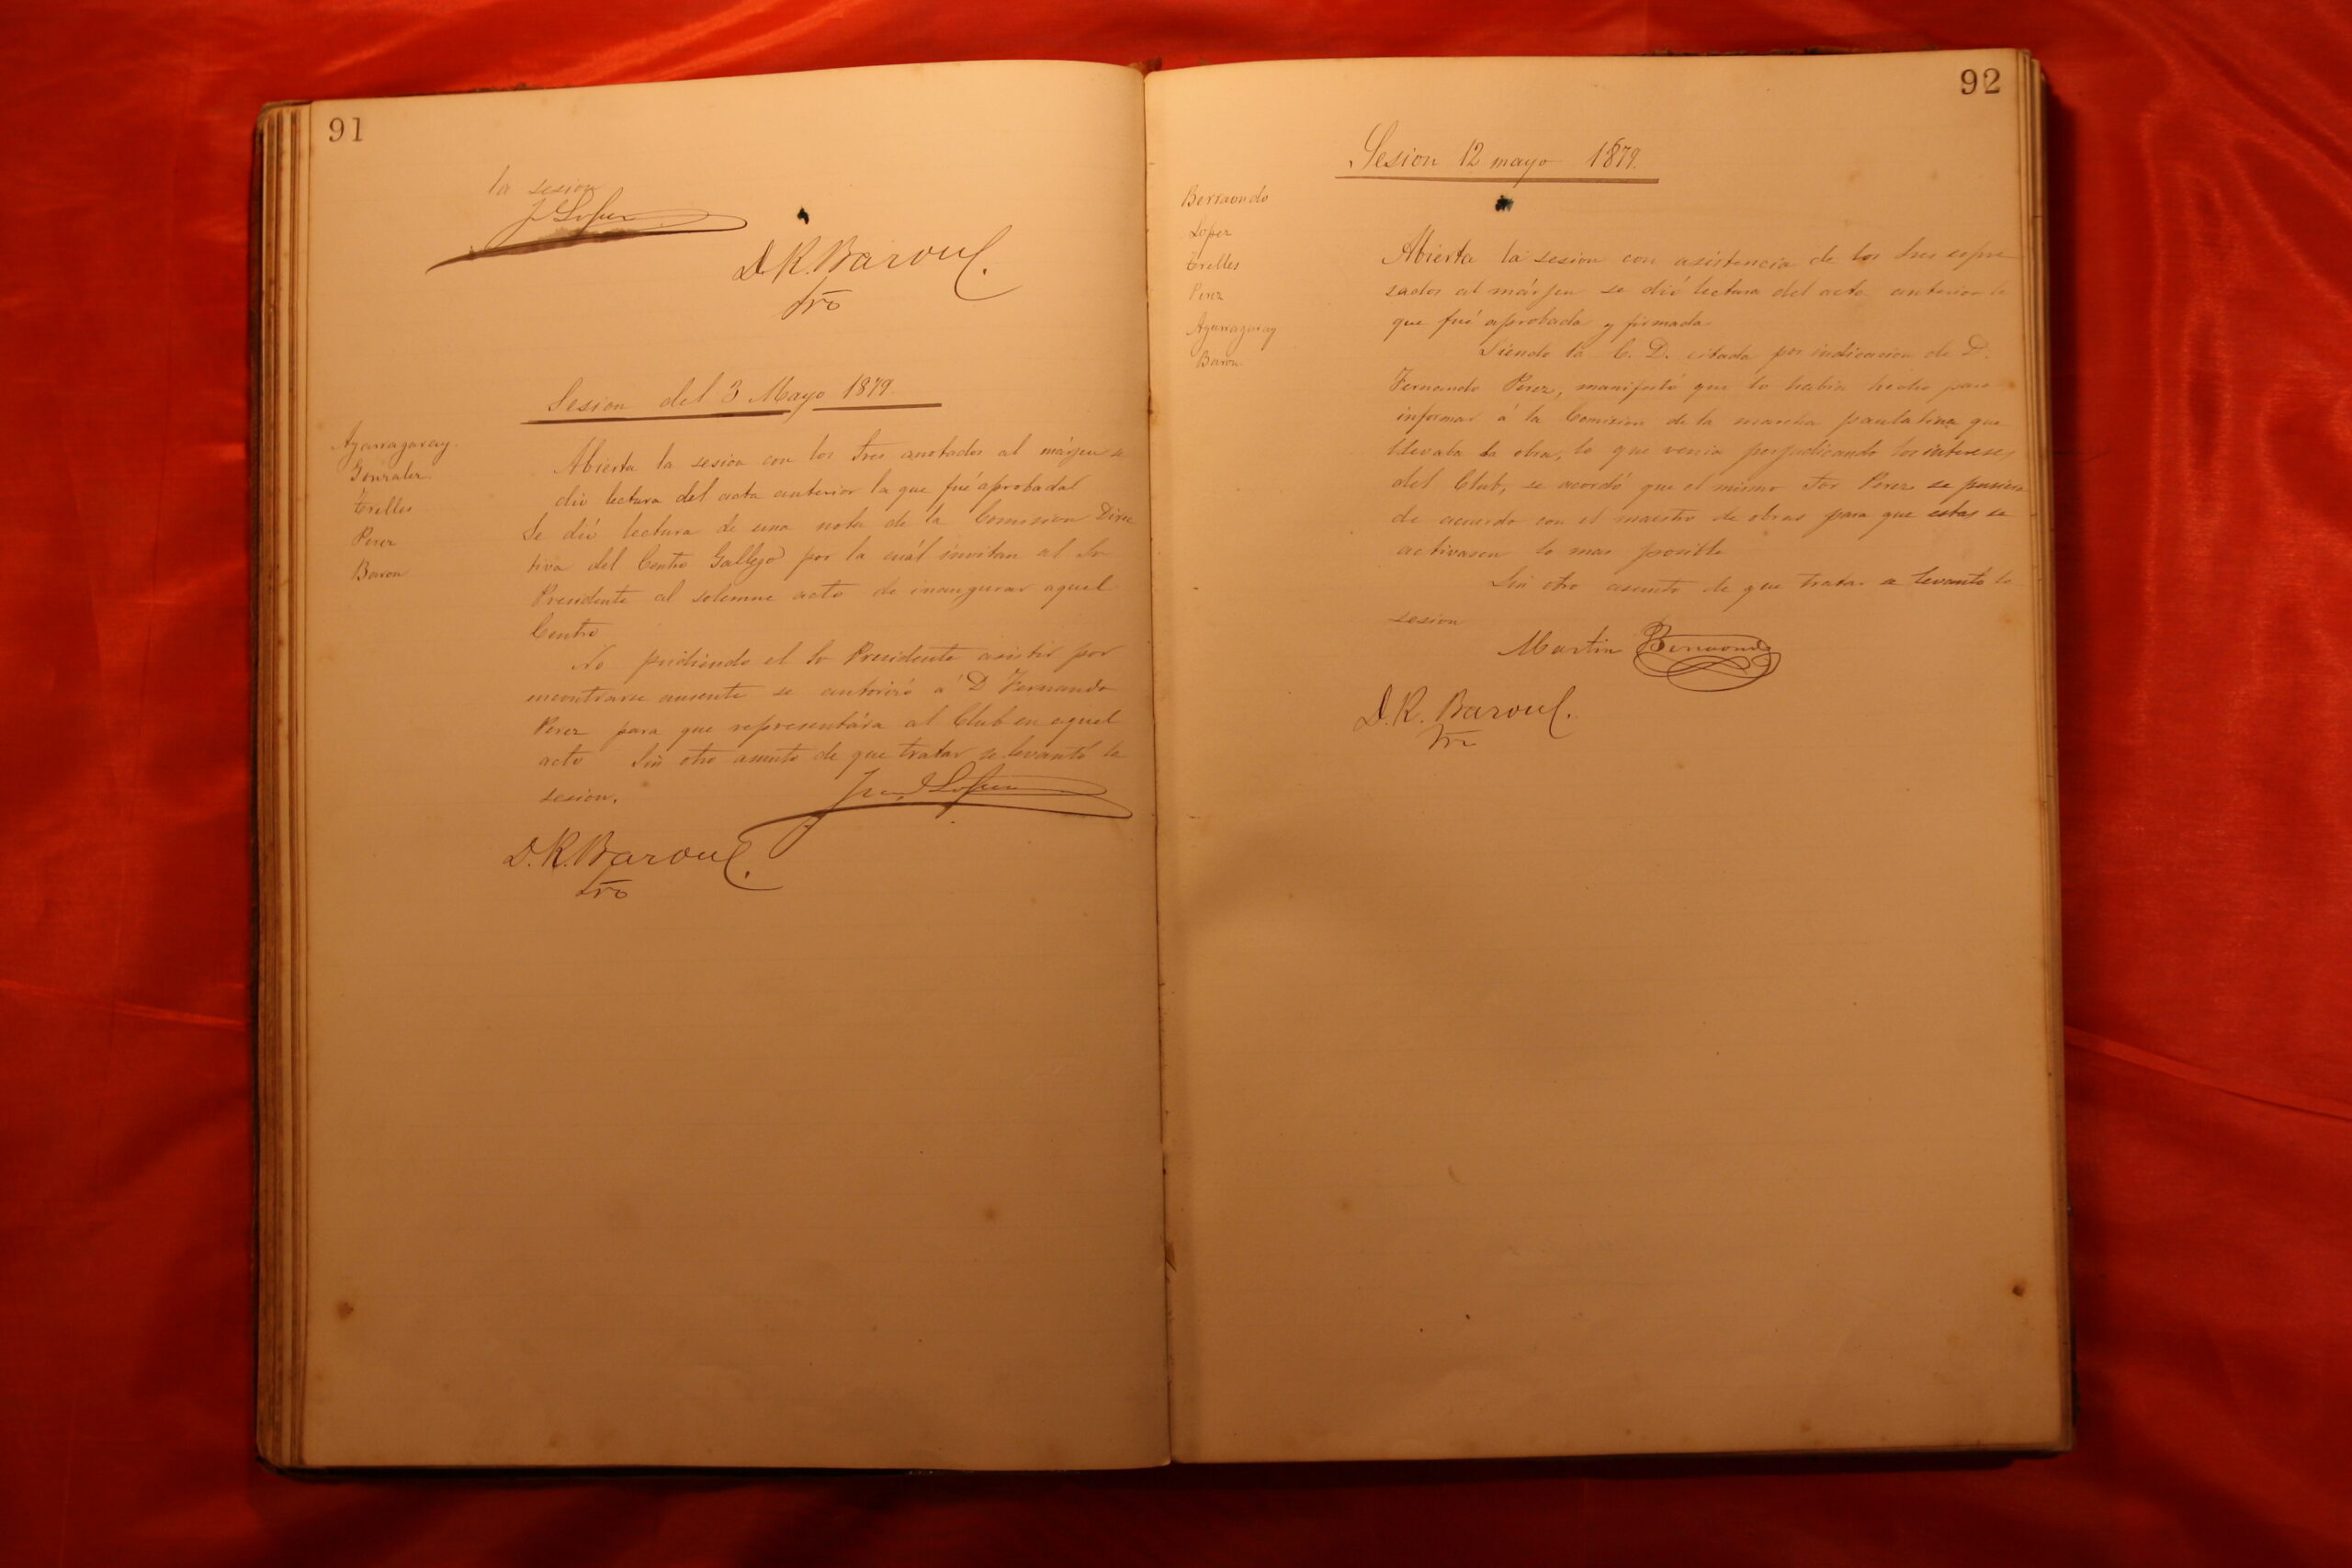 91
la sesion
J Lopez
D. R. Baron
Srio
Sesion del 3 Mayo 1879
Ayarragaray.
Gonzalez.
Trelles
Perez
Baron
Abierta la sesion con los Sres anotados al márjen se
dió lectura del acta anterior la que fué aprobada
Se dió lectura de una nota de la Comision Direc
tiva del Centro Gallego por la cuál invitan al Sr
Presidente al solemne acto de inaugurar aquel
Centro
No pudiendo el Sr Presidente asistir por
encontrarse ausente se autorizó á D Fernando
Perez para que representára al Club en aquel
acto Sin otro asunto de que tratar se levantó la
sesion.
Lopez
D. R. Baron
Srio
92
Sesion 12 mayo 1879.
Berraondo
Lopez
Trelles
Perez
Ayarragaray
Baron
Abierta la sesion con asistencia de los Sres espre
sados al márjen se dió lectura del acta anterior la
que fué aprobada y firmada
Siendo la C. D. citada por indicacion de D.
Fernando Perez, manifestó que lo habia hecho para
informar á la Comision de la marcha paulatina que
llevaba la obra, lo que venia perjudicando los intereses
del Club, se acordó que el mismo Sor Perez se pusiera
de acuerdo con el maestro de obras para que estas se
activasen lo mas posible
Sin otro asunto de que tratar se levantó la
sesion
Martin Berraondo
D. R. Baron.
Srio